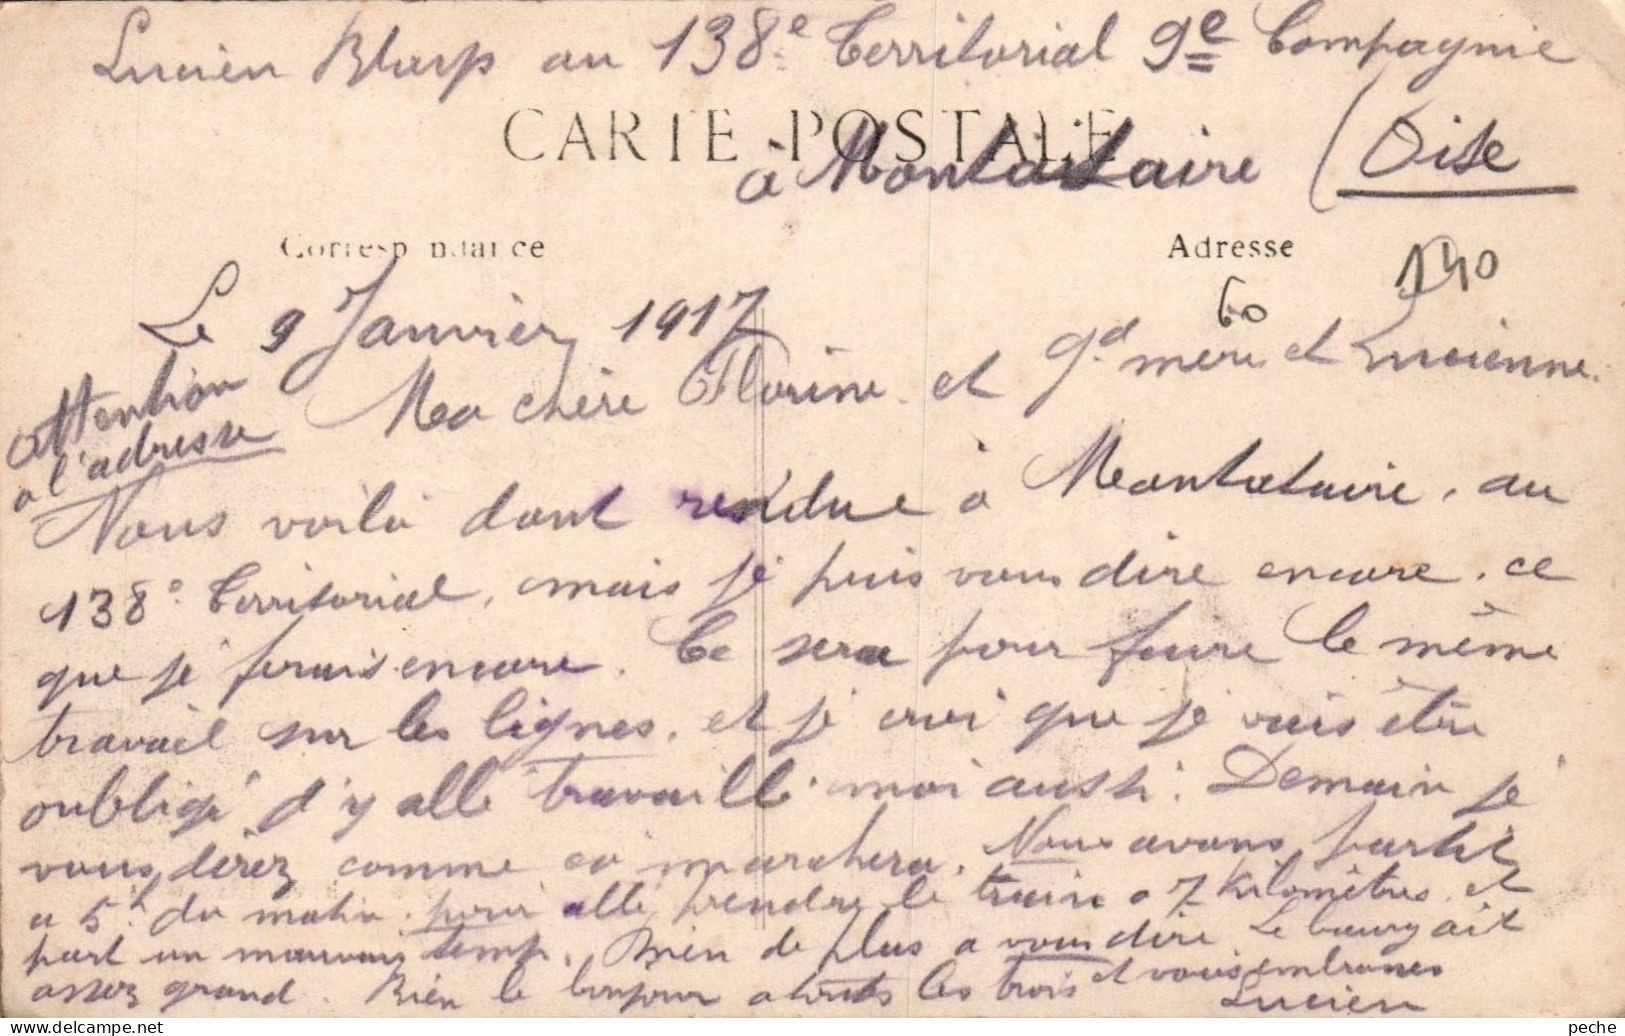 Lucien au 138e Territorial 9e Compagnie
CARTE POSTALE
à Montataire (Oise
Correspondance
Adresse
140
60
Le 9 Janvier 1917
Attention
a l'adresse
Ma chère Florine et gd mère et Lucienne.
Nous voilà dont rendue à Montataire, au
138e Territorial, mais je puis vous dire encore. ce
que je ferais encore. Ce sera pour faire le même
travail sur les lignes, et je croi que je vais être
oubligé d'y allé travaillé moi aussi. Demain je
vous direz comme ca marchera. Nous avons partit
a 5h du matin pour allé prendre le train a 7 Kilomètres et
part un mauvais temp. Rien de plus a vous dire Le bourg ait
assez grand. Bien le bonjour a touts les trois et vous embrasses
Lucien
peche